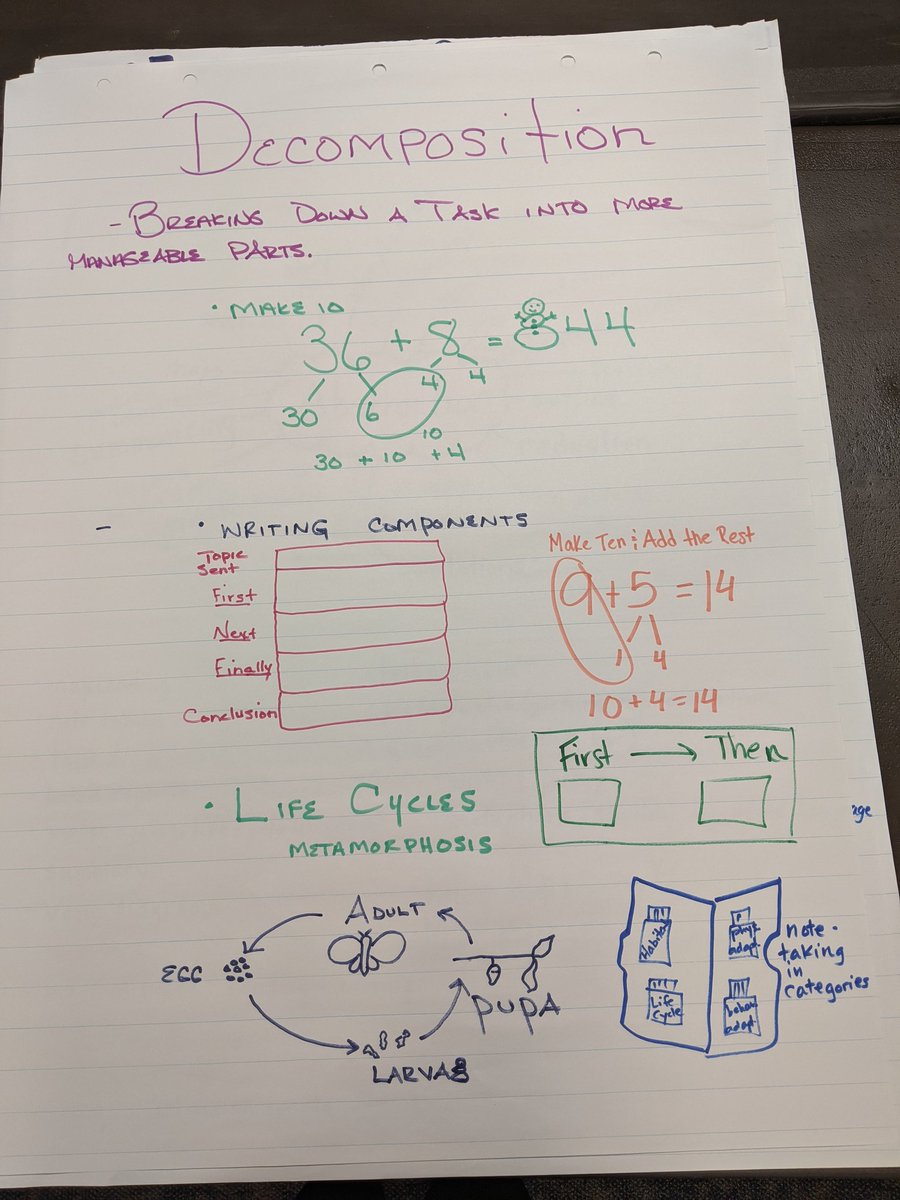 Decomposition
- Breaking Down a Task into more
manageable parts.
• Make 10
36 + 8 = 44
4 4
30 6
10
30 + 10 + 4
- • Writing Components
Topic
Sent
First
Next
Finally
Conclusion
Make Ten & Add the Rest
9 + 5 = 14
1 4
10 + 4 = 14
First → Then
• Life Cycles
Metamorphosis
Adult
Egg
Pupa
Larvae
Habitat
Life
Cycle
phys
adapt
behav
adapt
note-
taking
in
categories